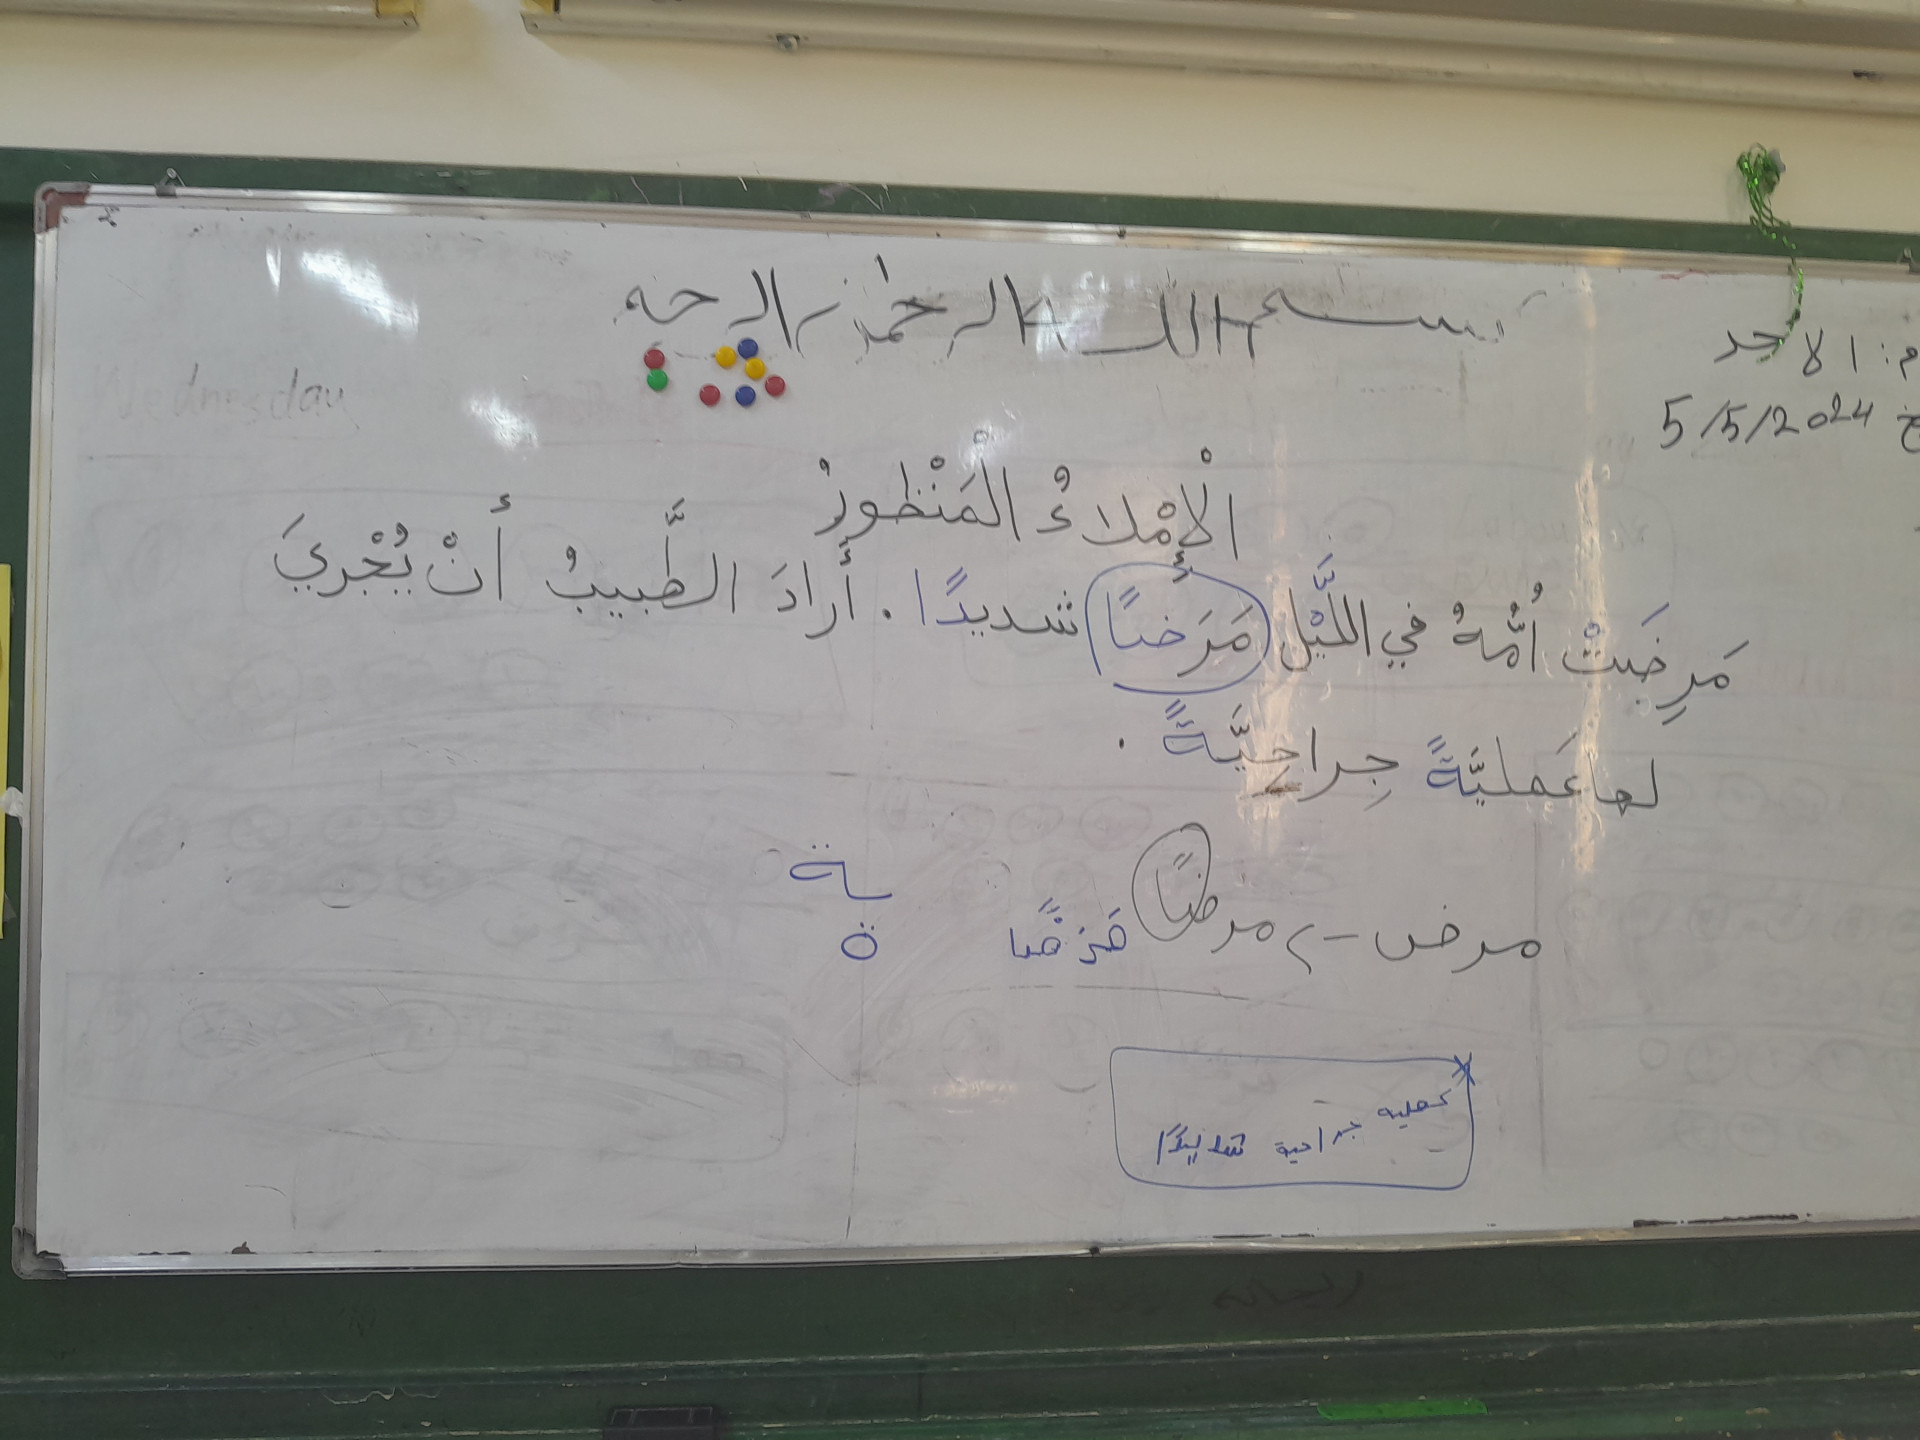 بسم الله الرحمن الرحيم
م: الاحد
خ 5/5/2024
الْإِمْلاءُ الْمَنْظورُ
مَرِضَتْ أُمُّهُ في اللَّيْلِ مَرَضًا شديدًا. أَرادَ الطَّبيبُ أَنْ يُجْريَ
لها عَمليَّةً جِراحِيَّةً.
مرض -> مرضًا
ـة
ة
عملية جراحية شديدًا
Wednesday